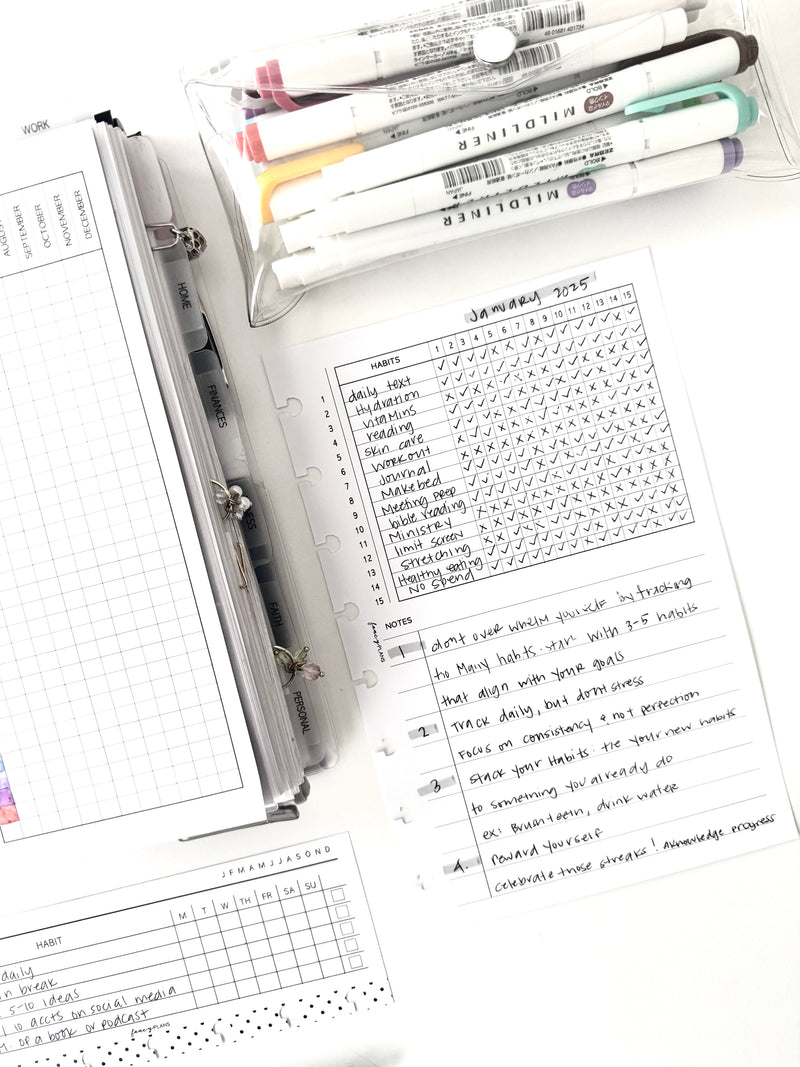 WORK
AUGUST
SEPTEMBER
OCTOBER
NOVEMBER
DECEMBER
HOME
FINANCES
FAITH
PERSONAL
MILDLINER
FINE
BOLD
ZEBRA
JAPAN
MILDLINER
FINE
JAPAN
49 01681 401734
January 2025
HABITS 1 2 3 4 5 6 7 8 9 10 11 12 13 14 15
1 daily text
2 Hydration
3 vitamins
4 reading
5 skin care
6 workout
7 Journal
8 Make bed
9 Meeting prep
10 bible reading
11 Ministry
12 limit screen
13 Stretching
14 Healthy eating
15 No Spend
fancyPLANS
NOTES
1 dont over whelm yourself by tracking
to Many habits. start with 3-5 habits
that align with your goals
2 Track daily, but dont stress
Focus on consistency & not perfection
3 Stack your Habits. tie your new habits
to something you already do
ex: Brush teeth, drink water
4. Reward yourself
Celebrate those streaks! Aknowledge progress
J F M A M J J A S O N D
HABIT M T W TH FR SA SU
daily
break
5-10 ideas
10 accts on social media
of a book or podcast
fancyPLANS